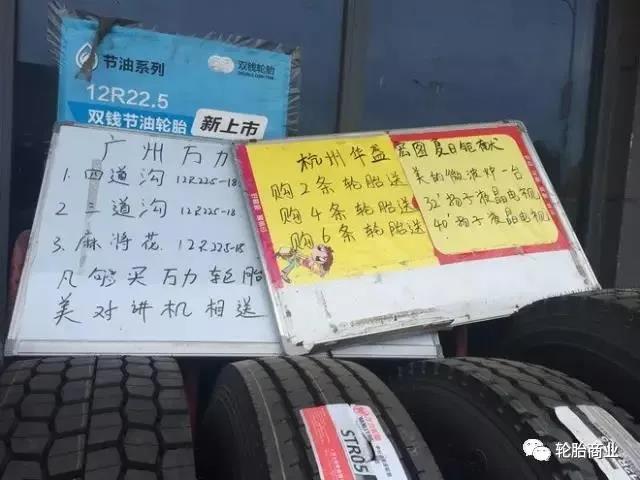 节油系列
双钱轮胎
12R22.5
双钱节油轮胎
新上市
广州万力
1. 四道沟 12R225-18
2 三道沟 12R225-18
3. 麻将花. 12R225-18
凡购买万力轮胎
美对讲机相送
杭州华盈
购2条轮胎送
购4条轮胎送
购6条轮胎送
宏图夏日
美的微波炉一台
32'扬子液晶电视
40'扬子液晶电视
STR05
轮胎商业